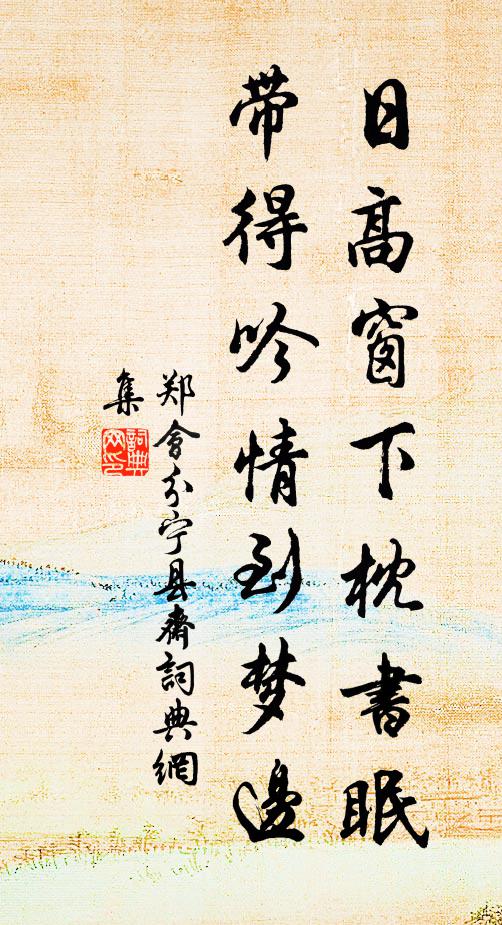 日高窗下枕書眠
带得吟情到梦邊
郑會分宁县齋詞典網
集
詞典網印